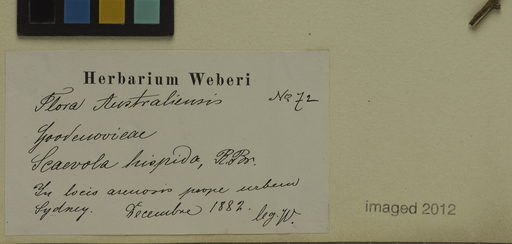 Herbarium Weberi
Flora Australiensis No 72
Goodenovieae
Scaevola hispida, R.Br.
In locis arenosis prope urbem
Sydney. Decembre 1882.
leg. W.
imaged 2012